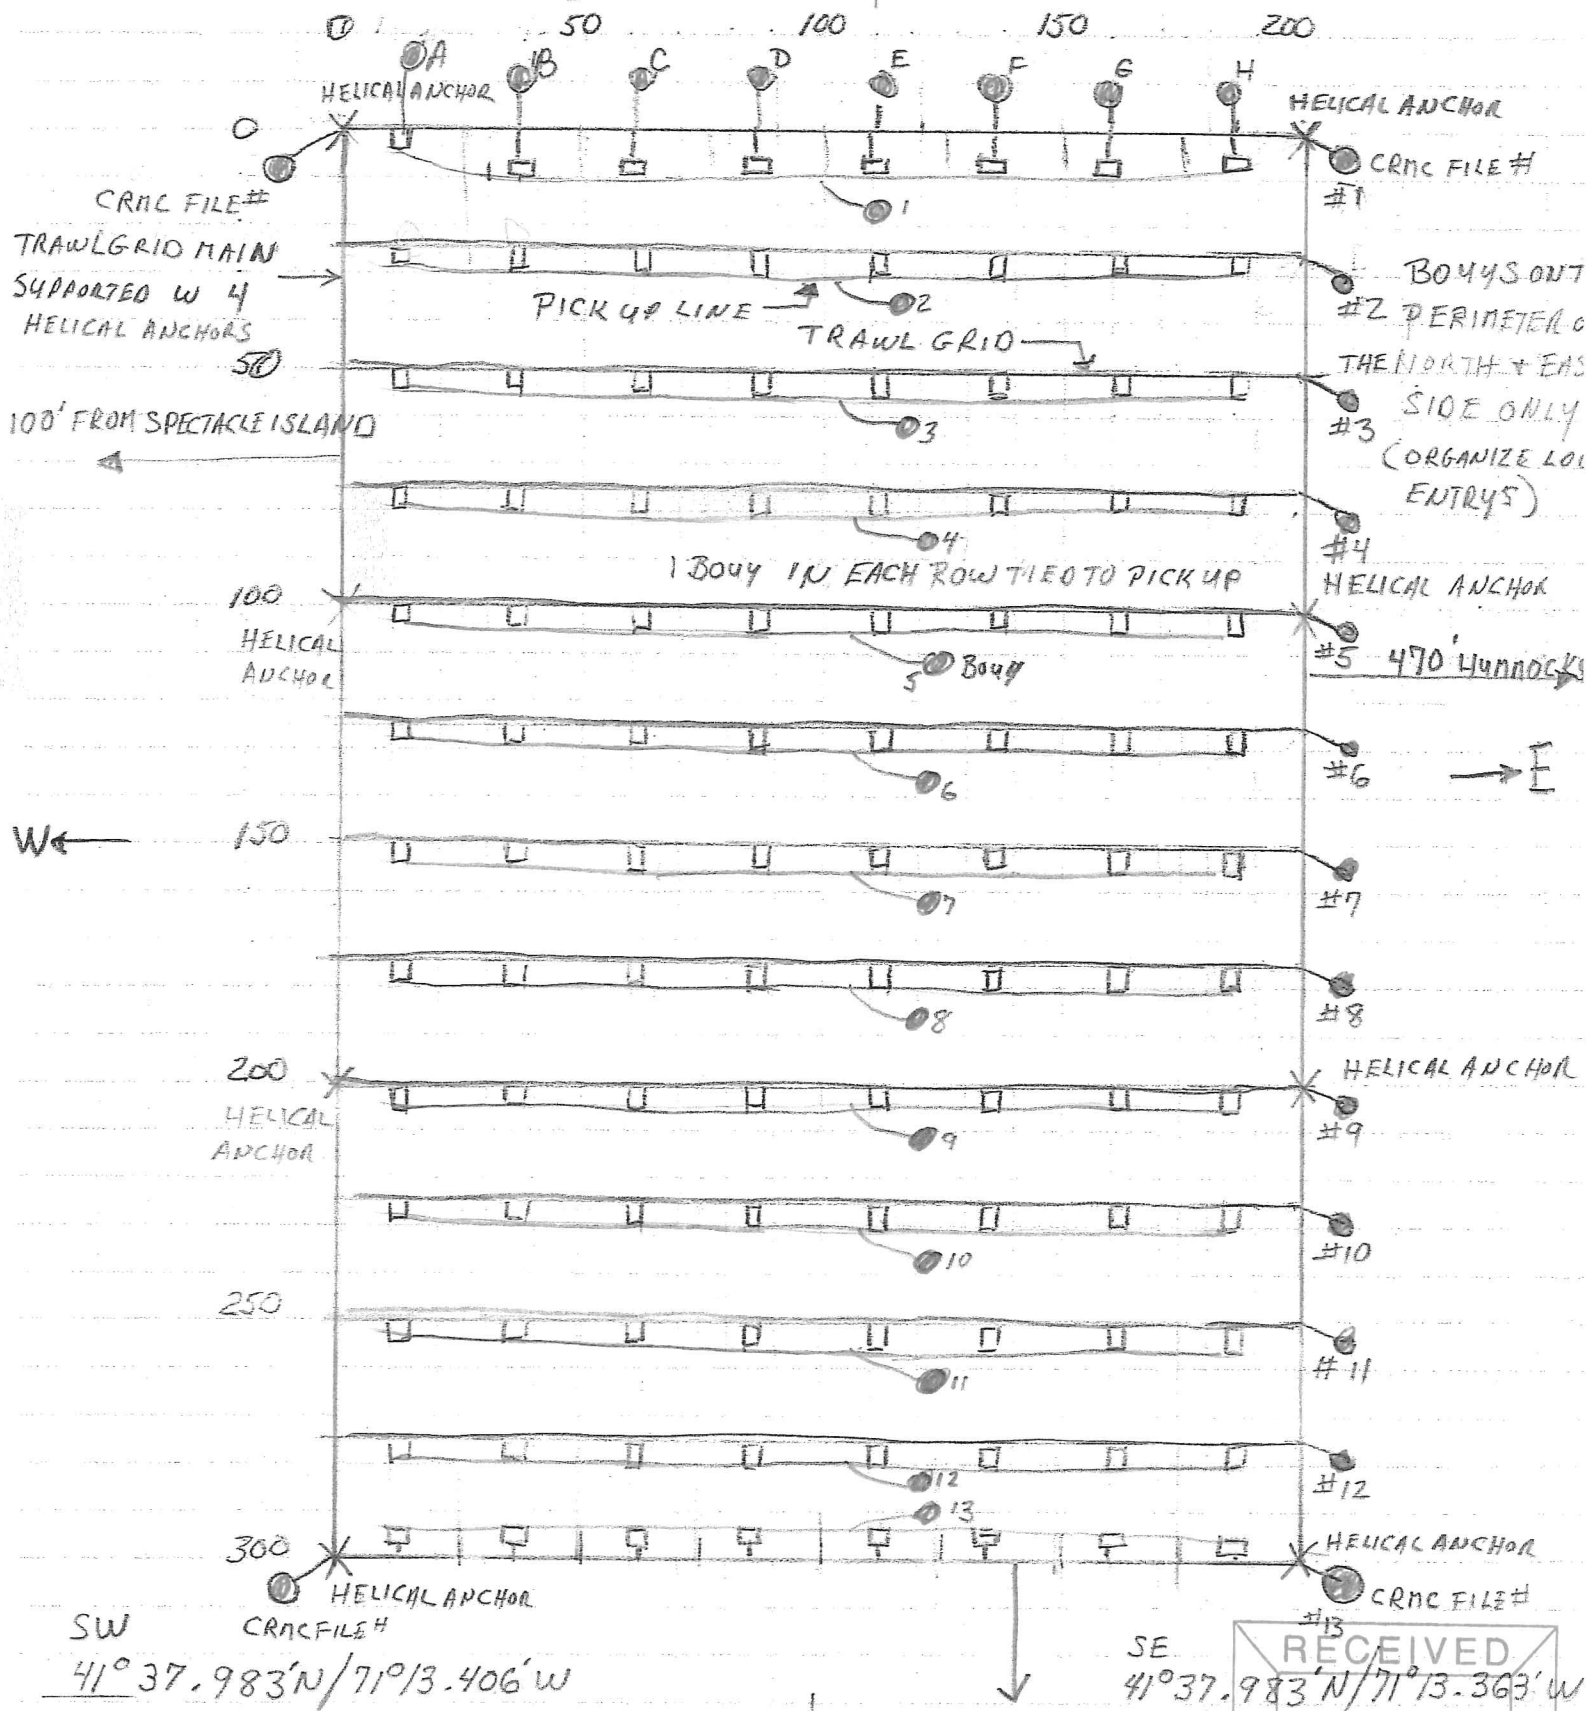 0 50 100 150 200
A B C D E F G H
HELICAL ANCHOR
HELICAL ANCHOR
0
CRMC FILE#
CRMC FILE #
#1
1
TRAWL GRID MAIN
SUPPORTED W 4
HELICAL ANCHORS
PICK UP LINE
2
#2
BOUYS ONT
PERIMETER O
THE NORTH + EAS
SIDE ONLY
(ORGANIZE LO
ENTRYS)
TRAWL GRID
50
3
#3
100' FROM SPECTACLE ISLAND
4
#4
1 BOUY IN EACH ROW TIED TO PICK UP
100
HELICAL
ANCHOR
HELICAL ANCHOR
5 Bouy
#5
470' HUMMOCKS
6
#6
E
W
150
7
#7
8
#8
200
HELICAL
ANCHOR
HELICAL ANCHOR
9
#9
10
#10
250
11
#11
12
#12
13
300
HELICAL ANCHOR
CRMC FILE#
HELICAL ANCHOR
CRMC FILE#
#13
SW
41° 37.983'N/71°13.406'W
SE
41°37.983'N/71°13.363'W
RECEIVED